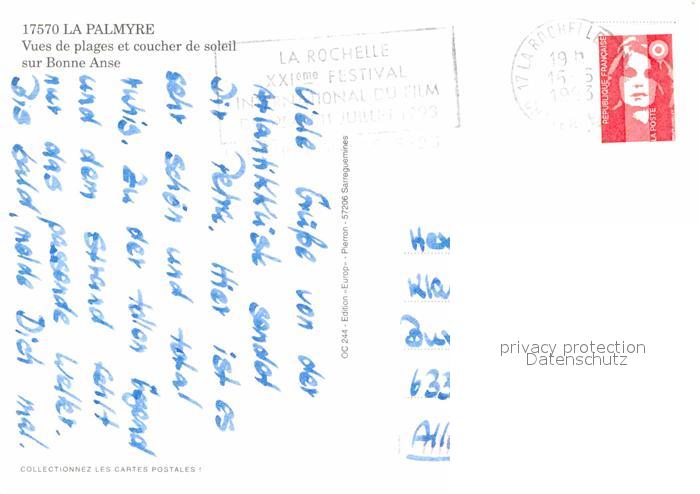 17570 LA PALMYRE
Vues de plages et coucher de soleil
sur Bonne Anse
LA ROCHELLE
XXIème FESTIVAL
INTERNATIONAL DU FILM
JUILLET 1993
17 LA ROCHELLE
19 H
16-6
1993
RÉPUBLIQUE FRANÇAISE
LA POSTE
Viele Grüße von der
Atlantikküste sendet
Dir Petra. Hier ist es
sehr schön und total
ruhig. Zu der tollen Gegend
und dem Strand fehlt
nur das passende Wetter.
Bis bald, melde Dich mal.
OC 244 - Edition «Europ» - Pierron - 57206 Sarreguemines
633
privacy protection
Datenschutz
COLLECTIONNEZ LES CARTES POSTALES !